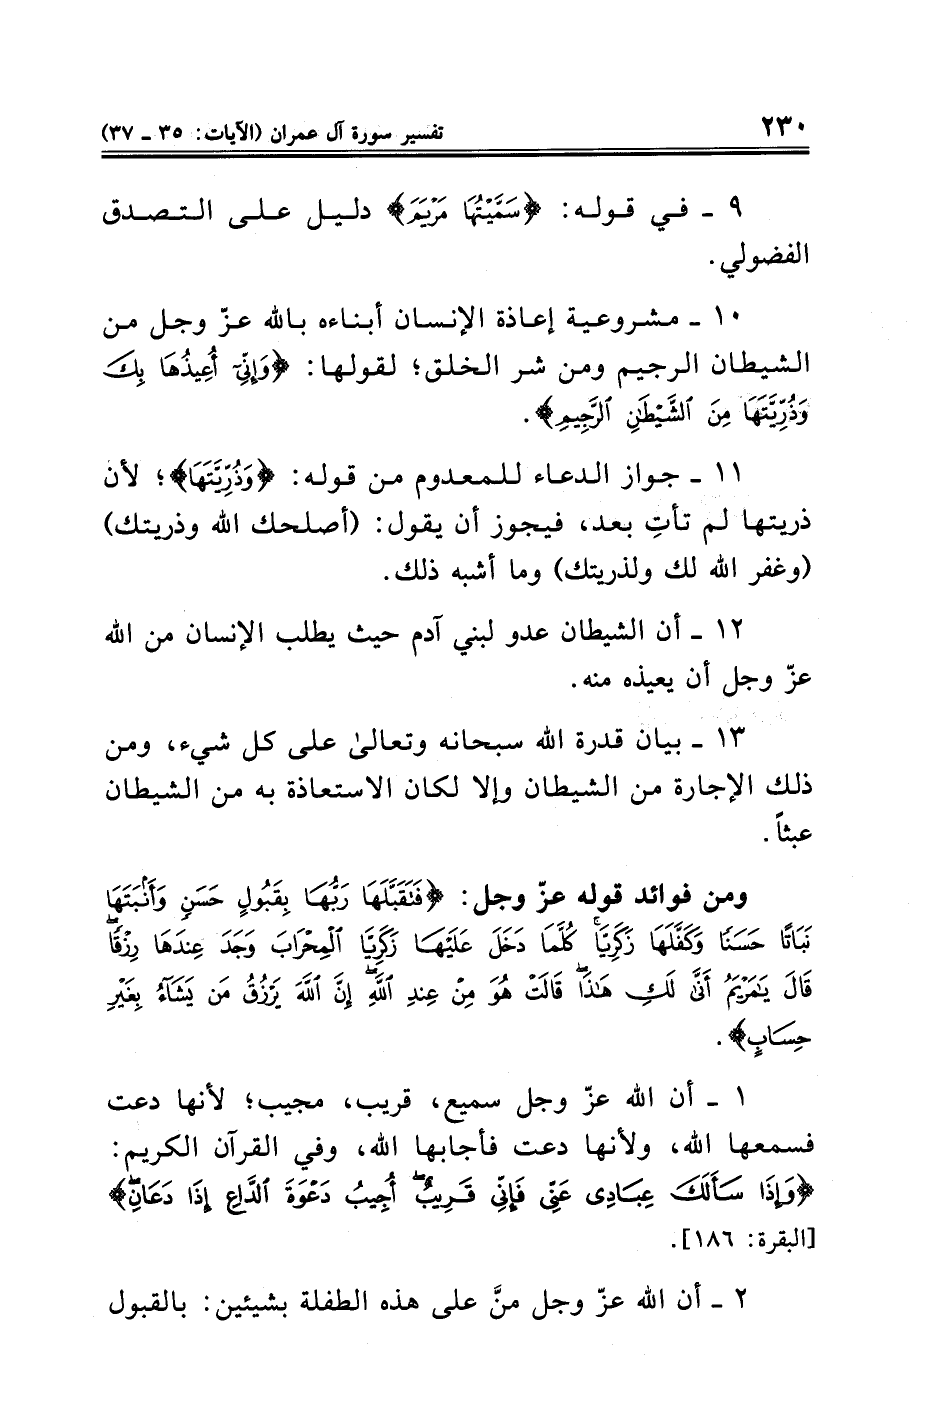 ٢٣٠ تفسير سورة آل عمران (الآيات: ٣٥ ـ ٣٧)
٩ ـ في قوله: ﴿سَمَّيْتُهَا مَرْيَمَ﴾ دليل على التصدق
الفضولي.
١٠ ـ مشروعية إعاذة الإنسان أبناءه بالله عزّ وجل من
الشيطان الرجيم ومن شر الخلق؛ لقولها: ﴿وَإِنِّىٓ أُعِيذُهَا بِكَ
وَذُرِّيَّتَهَا مِنَ ٱلشَّيْطَٰنِ ٱلرَّجِيمِ﴾.
١١ ـ جواز الدعاء للمعدوم من قوله: ﴿وَذُرِّيَّتَهَا﴾؛ لأن
ذريتها لم تأتِ بعد، فيجوز أن يقول: (أصلحك الله وذريتك)
(وغفر الله لك ولذريتك) وما أشبه ذلك.
١٢ ـ أن الشيطان عدو لبني آدم حيث يطلب الإنسان من الله
عزّ وجل أن يعيذه منه.
١٣ ـ بيان قدرة الله سبحانه وتعالىٰ على كل شيء، ومن
ذلك الإجارة من الشيطان وإلا لكان الاستعاذة به من الشيطان
عبثاً.
ومن فوائد قوله عزّ وجل: ﴿فَتَقَبَّلَهَا رَبُّهَا بِقَبُولٍ حَسَنٍ وَأَنۢبَتَهَا
نَبَاتًا حَسَنًا وَكَفَّلَهَا زَكَرِيَّاۖ كُلَّمَا دَخَلَ عَلَيْهَا زَكَرِيَّا ٱلْمِحْرَابَ وَجَدَ عِندَهَا رِزْقًاۖ
قَالَ يَٰمَرْيَمُ أَنَّىٰ لَكِ هَٰذَاۖ قَالَتْ هُوَ مِنْ عِندِ ٱللَّهِۖ إِنَّ ٱللَّهَ يَرْزُقُ مَن يَشَآءُ بِغَيْرِ
حِسَابٍ﴾.
١ ـ أن الله عزّ وجل سميع، قريب، مجيب؛ لأنها دعت
فسمعها الله، ولأنها دعت فأجابها الله، وفي القرآن الكريم:
﴿وَإِذَا سَأَلَكَ عِبَادِى عَنِّى فَإِنِّى قَرِيبٌۖ أُجِيبُ دَعْوَةَ ٱلدَّاعِ إِذَا دَعَانِۖ﴾
[البقرة: ١٨٦].
٢ ـ أن الله عزّ وجل منَّ على هذه الطفلة بشيئين: بالقبول